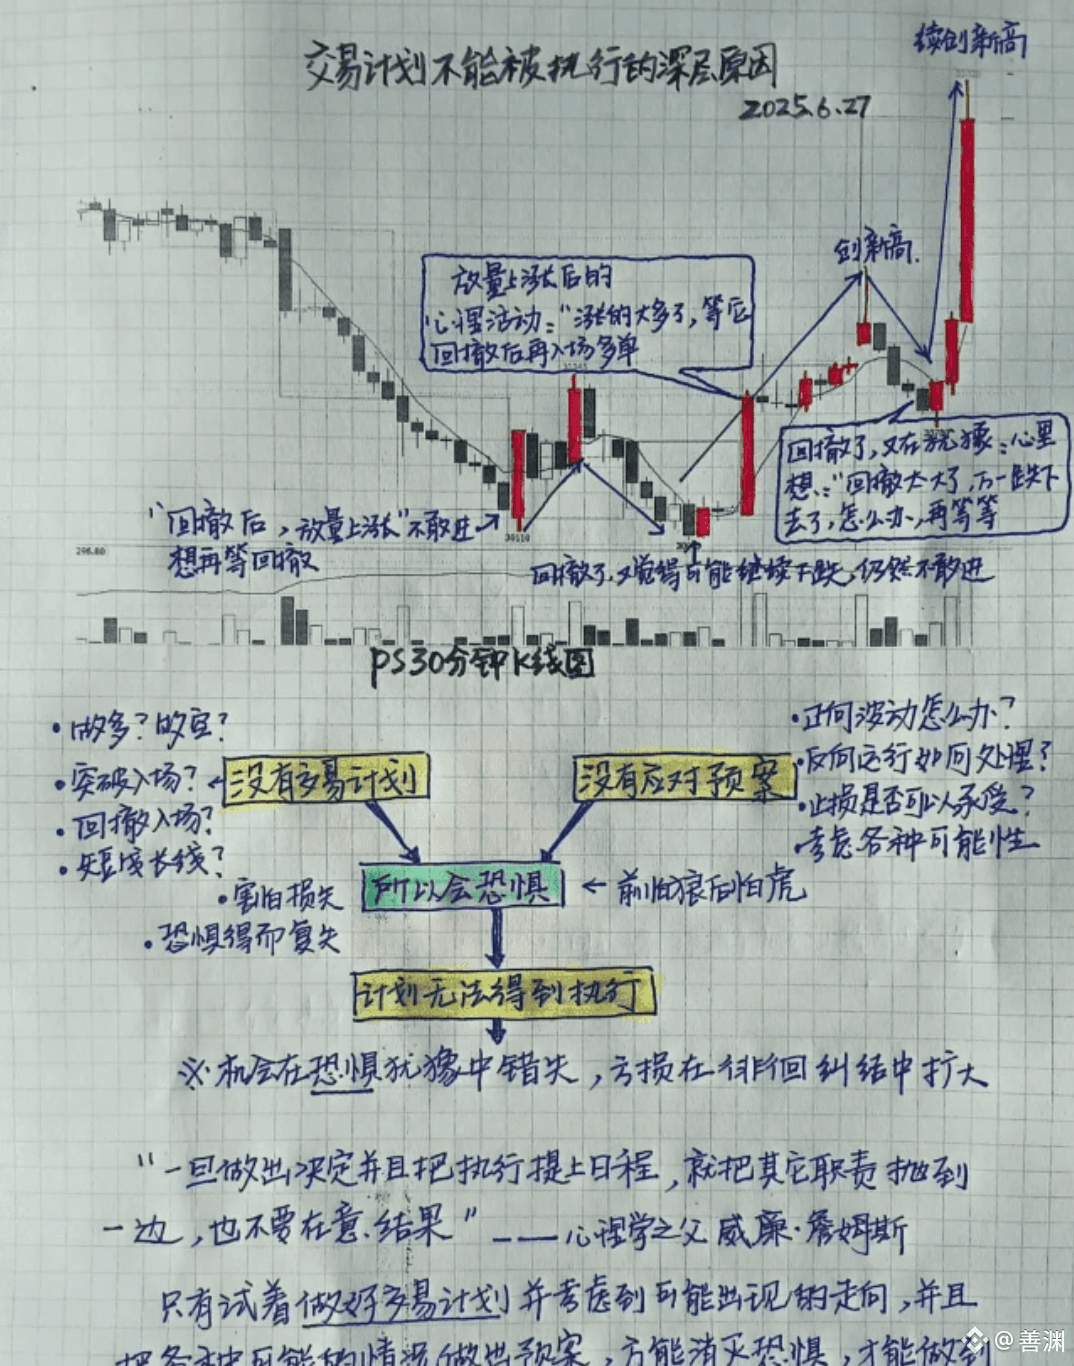 续创新高
交易计划不能被执行的深层原因
2025.6.27
创新高.
放量上涨后的
心理活动:“涨的太多了,等它
回撤后再入场多单
回撤了,又在犹豫:心里
想:“回撤太大了,万一跌下
去了,怎么办,再等等
“回撤后,放量上涨”不敢进
想再等回撤
30110
296.60
回撤了,又觉得可能继续下跌,仍然不敢进
PS30分钟K线图
·做多?做空?
·突破入场?
·回撤入场?
·短或长线?
没有交易计划
没有应对预案
·正向波动怎么办?
·反向运行如何处理?
·止损是否可以承受?
·考虑各种可能性
所以会恐惧
前怕狼后怕虎
·害怕损失
·恐惧得而复失
计划无法得到执行
※机会在恐惧犹豫中错失,亏损在徘徊纠结中扩大
“一旦做出决定并且把执行提上日程,就把其它职责抛到
一边,也不要在意.结果”——心理学之父 威廉·詹姆斯
只有试着做好交易计划并考虑到可能出现的走向,并且
把各种可能的情况做出预案,方能消灭恐惧,才能做到
@善渊